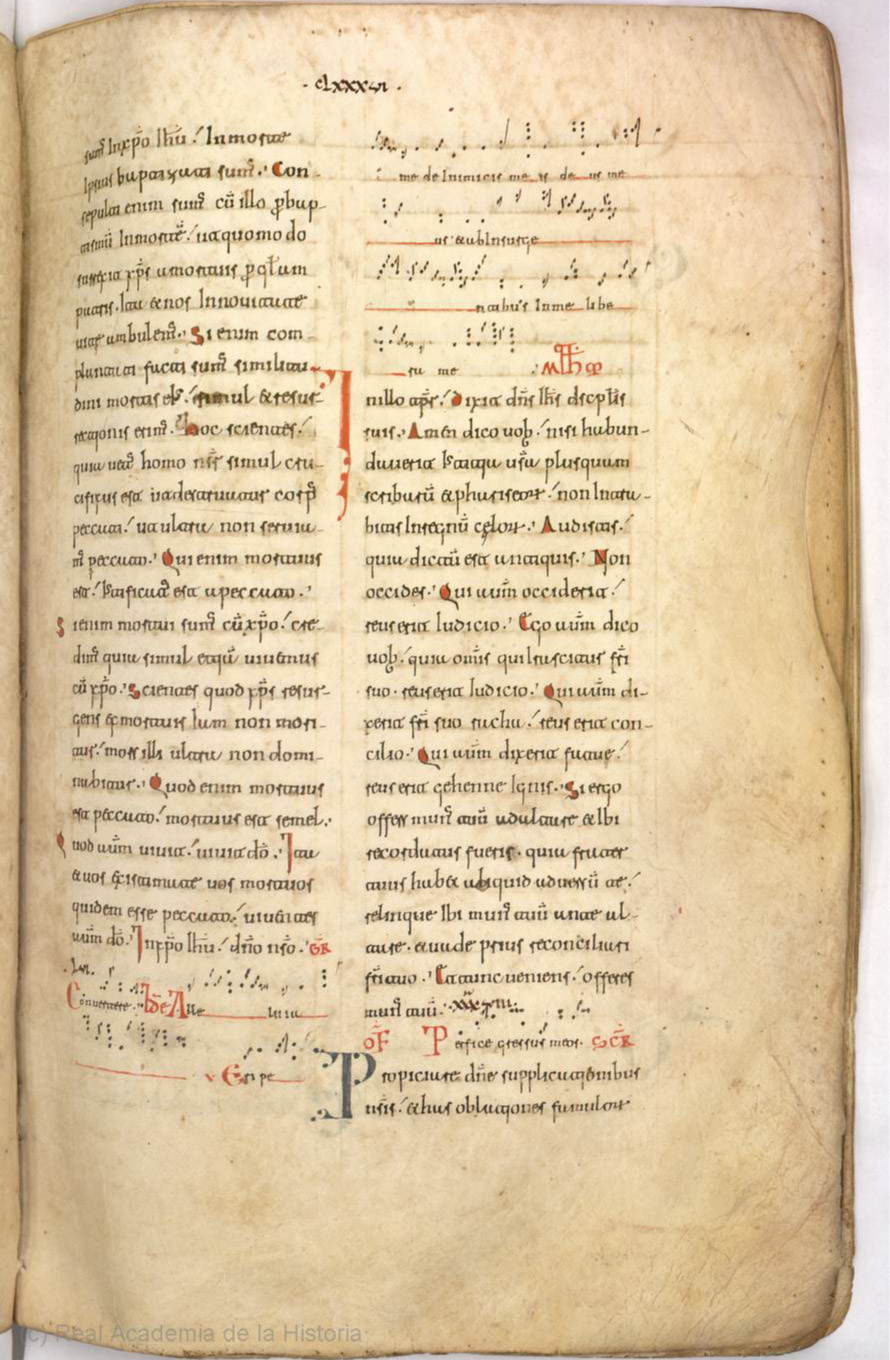 ·clxxxvi·
sum̅ In xp̅o Ih̅u / In morte
Ipsius baptizati sum̅. Con-
sepulti enim sum̅ cu̅ illo p̱ bap-
tismu̅ In morte̅ / ut quomodo
surrexit xp̅s a mortuis p̱ gl̅am
patris. Ita et nos In novitate
vite ambulem̅. Si enim com-
plantati facti sum̅ similitu-
dini mortis ei̅s / simul et resur-
rectionis erim̅. Hoc scientes /
quia vet̅ homo nr̅s simul cru-
cifixus est ut destruatur corp̅
peccati / ut ultra non servia-
m̅ peccato. Qui enim mortuus
est / iustificat̅ est a peccato.
Si enim mortui sum̅ cu̅ xp̅o / cre-
dim̅ quia simul etia̅ vivemus
cu̅ xp̅o. Scientes quod xp̅s resur-
gens ex mortuis Iam non mori-
tur / mors illi ultra non domi-
nabitur. Quod enim mortuus
est peccato / mortuus est semel.
Quod aum̅ vivit / vivit do̅. Ita
et vos existimate vos mortuos
quidem esse peccato / viventes
aum̅ do̅. In xp̅o Ih̅u / dn̅o nr̅o. GR̅
Convertere. Alle luia
V Eripe
me de Inimicis meis deus me
us et ab Insurge
ntibus In me libe
ra me M̅th̅
In illo tp̅r / Dixit dn̅s Ih̅s discpl̅is
suis. Amen dico vob̅ / nisi habun-
daverit iustitia vr̅a plusquam
scribaru̅ et phariseor̅ / non Intra-
bitis In regnu̅ celor̅. Audistis /
quia dictu̅ est antiquis. Non
occides. Qui aum̅ occiderit /
reus erit Iudicio. Ego aum̅ dico
vob̅ / quia omn̅s qui Irascitur fr̅i
suo. reus erit Iudicio. Qui aum̅ di-
xerit fr̅i suo racha / reus erit con-
cilio. Qui aum̅ dixerit fatue /
reus erit gehenne Ignis. Si ergo
offers mun̅ tuu̅ ad altare et Ibi
recordatus fueris. quia frater
tuus habet aliquid adversu̅ te /
relinque Ibi mun̅ tuu̅ ante al-
tare. et vade prius reconciliari
fr̅i tuo. Et tunc veniens / offeres
mun̅ tuu̅.
OF̅ Perfice gressus meos. SCR̅
Propitiare dn̅e supplicationibus
nr̅is / et has oblationes famulor̅
(c) Real Academia de la Historia